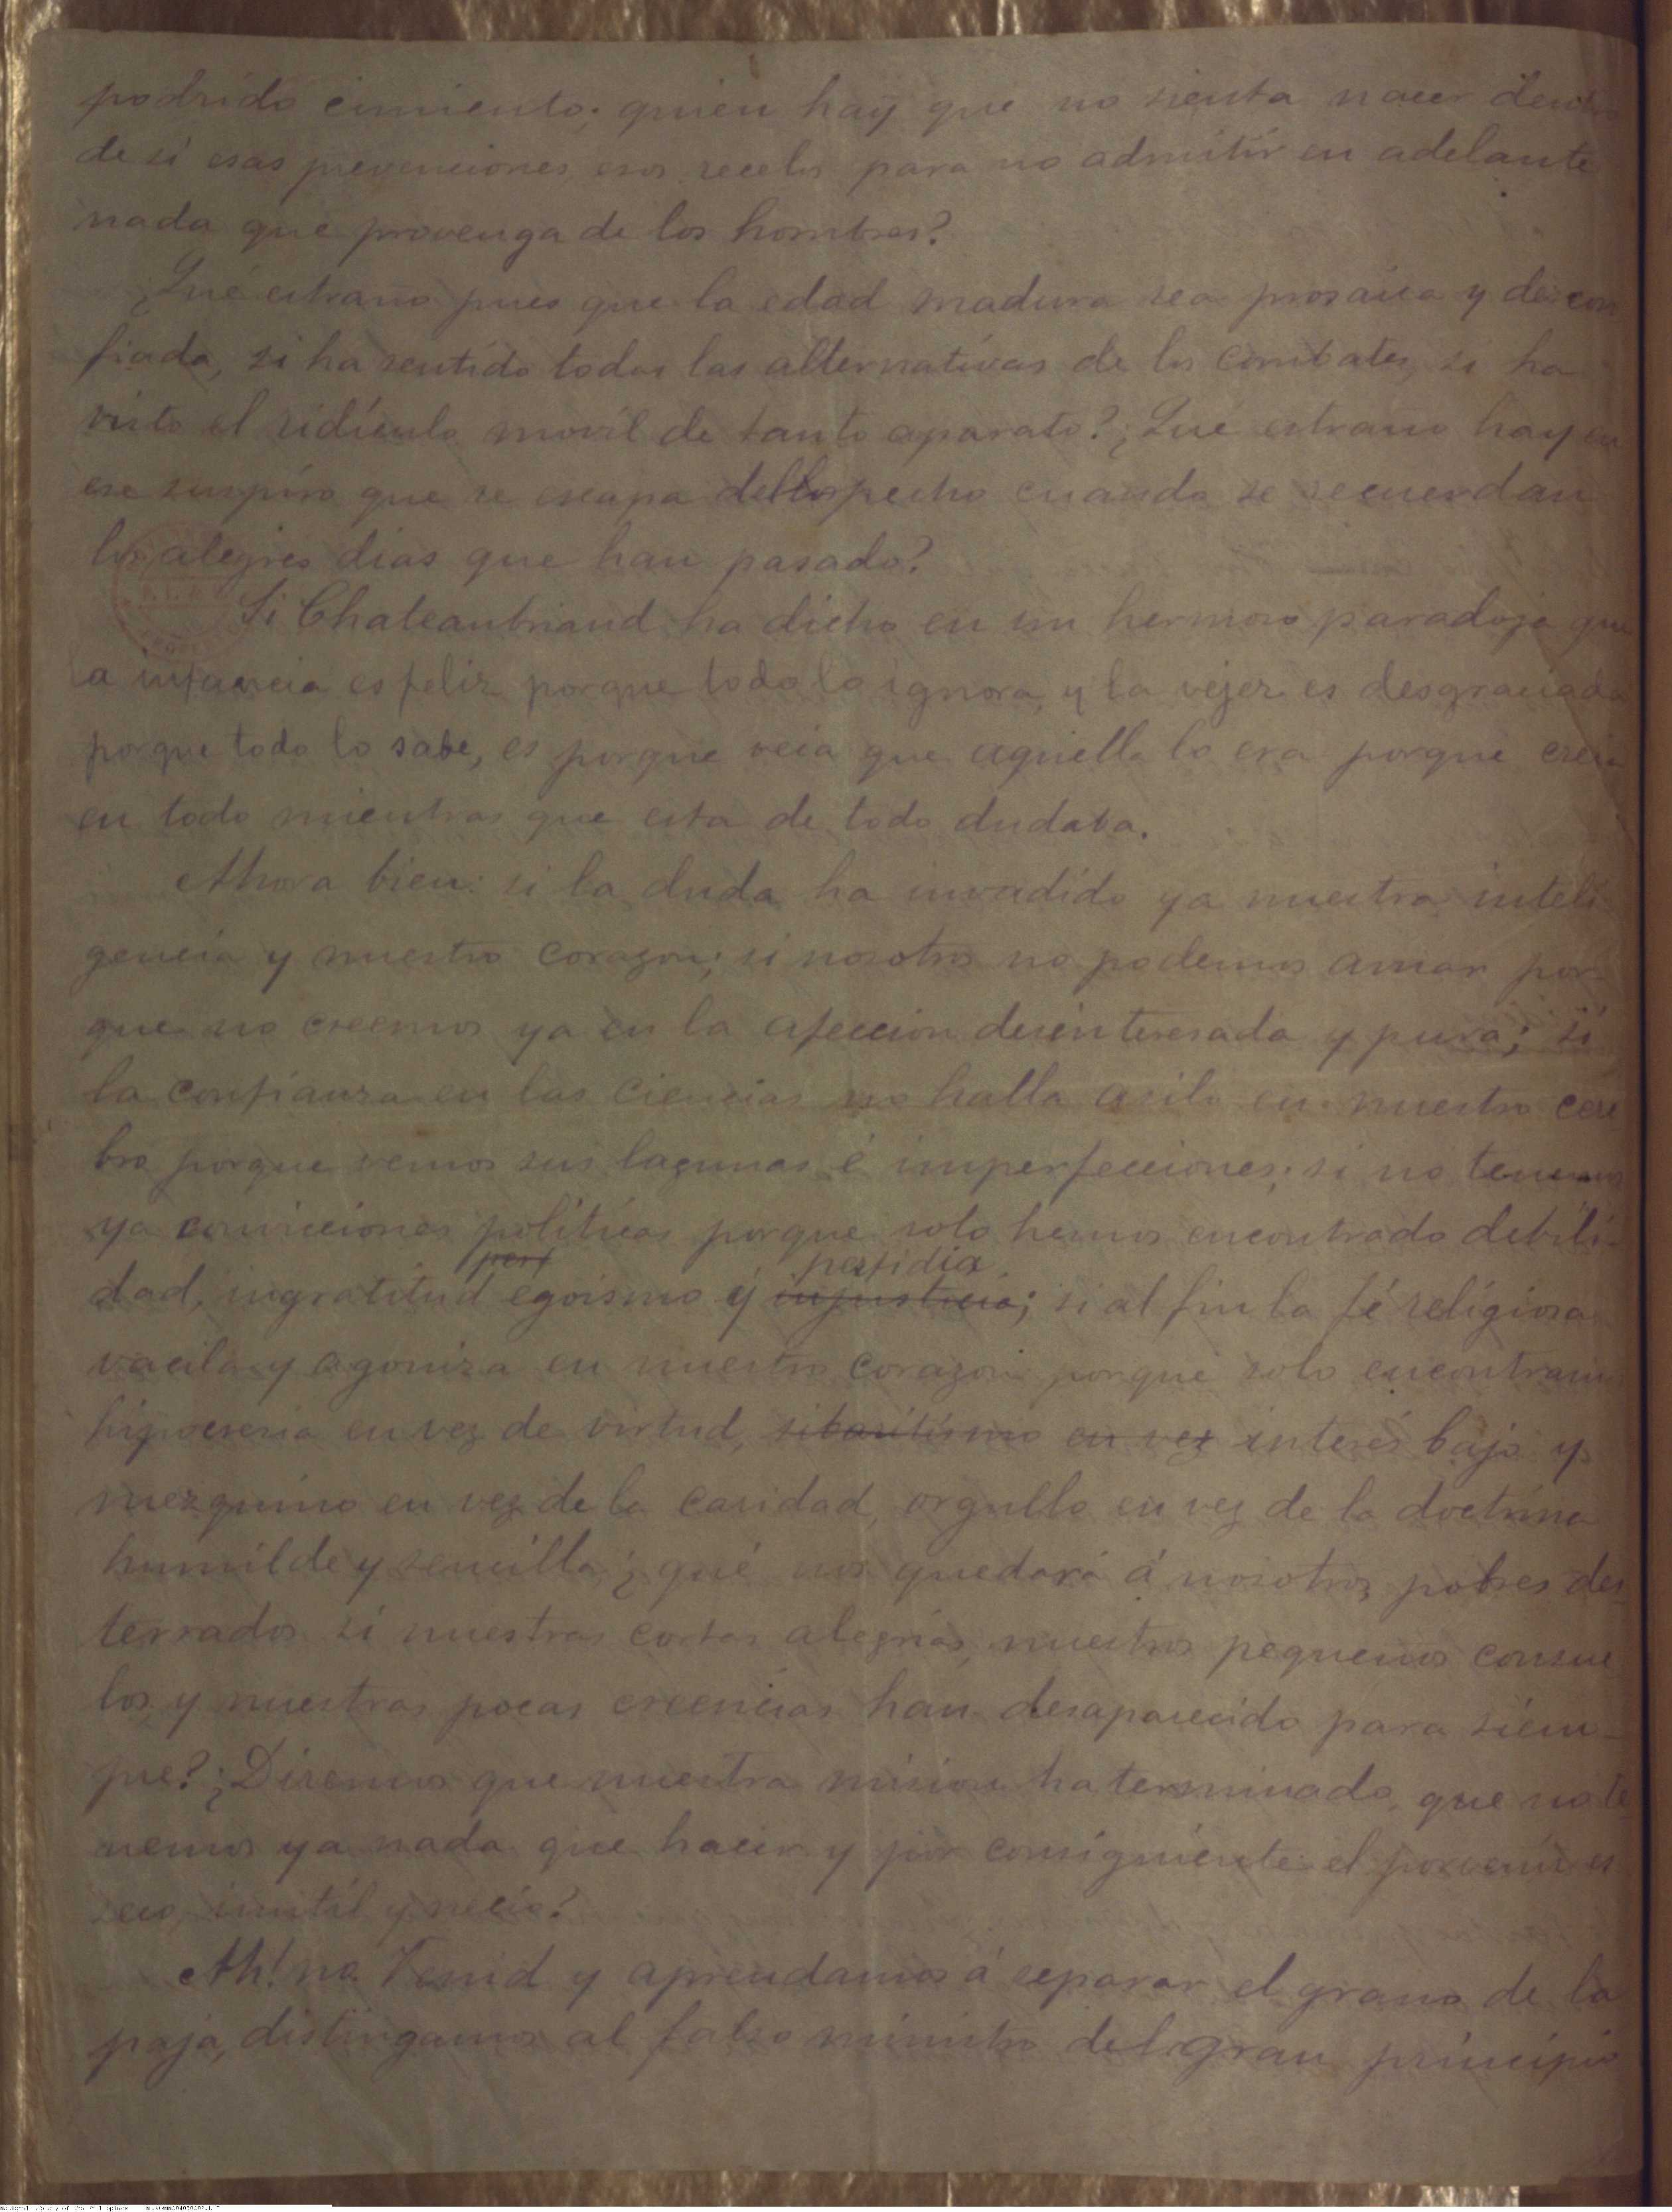 podrido cimiento; quien hay que no sienta nacer dentro
de sí esas prevenciones, esos recelos para no admitir en adelante
nada que provenga de los hombres?
¿Qué estraño pues que la edad madura sea prosaica y descon
fiada, si ha sentido todas las alternativas de los combates, si ha
visto el ridículo movil de tanto aparato? ¿Qué estraño hay en
ese suspiro que se escapa del pecho cuando se recuerdan
los alegres dias que han pasado?
Si Chateaubriand ha dicho en un hermoso paradoja que
la infancia es feliz porque todo lo ignora, y la vejez es desgraciada
porque todo lo sabe, es porque veia que aquella lo era porque creia
en todo mientras que esta de todo dudaba.
Ahora bien: si la duda ha invadido ya nuestra inteli
gencia y nuestro corazon; si nosotros no podemos amar por-
que no creemos ya en la afeccion desinteresada y pura; si
la confianza en las ciencias no halla asilo en nuestro cere
bro porque vemos sus lagunas é imperfecciones; si no tenemos
ya convicciones políticas porque solo hemos encontrado debili-
perf perfidia
dad, ingratitud egoismo y injusticia; si al fin la fé religiosa
vacila y agoniza en nuestro corazon porque solo encontramos
hipocresia en vez de virtud, sibaritismo en vez interés bajo y
mezquino en vez de la caridad, orgullo en vez de la doctrina
humilde y sencilla ¿qué nos quedará á nosotros, pobres des
terrados si nuestras cortas alegrías, nuestros pequeños consue
los y nuestras pocas creencias han desaparecido para siem-
pre? ¿Diremos que nuestra mision ha terminado, que no te
nemos ya nada que hacer y por consiguiente el porvenir es
seco, inutil y necio?
Ah! no. Venid y aprendamos á ceparar el grano de la
paja, distingamos al falso ministro del gran principio